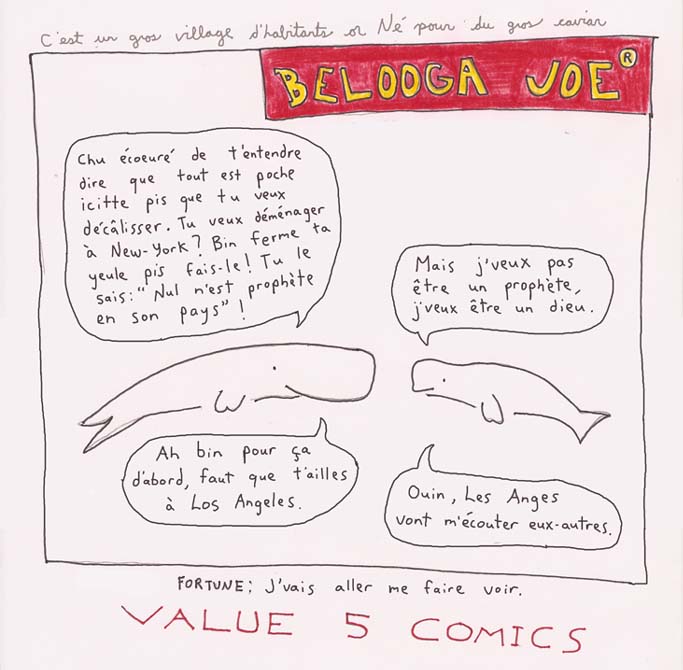 C'est un gros village d'habitants or Né pour du gros caviar
BELOOGA JOE®
Chu écoeuré de t'entendre
dire que tout est poche
icitte pis que tu veux
décâlisser. Tu veux déménager
à New-York? Bin ferme ta
yeule pis fais-le! Tu le
sais: "Nul n'est prophète
en son pays"!
Mais j'veux pas
être un prophète,
j'veux être un dieu.
Ah bin pour ça
d'abord, faut que t'ailles
à Los Angeles.
Ouin, Les Anges
vont m'écouter eux-autres.
FORTUNE: J'vais aller me faire voir.
VALUE 5 COMICS